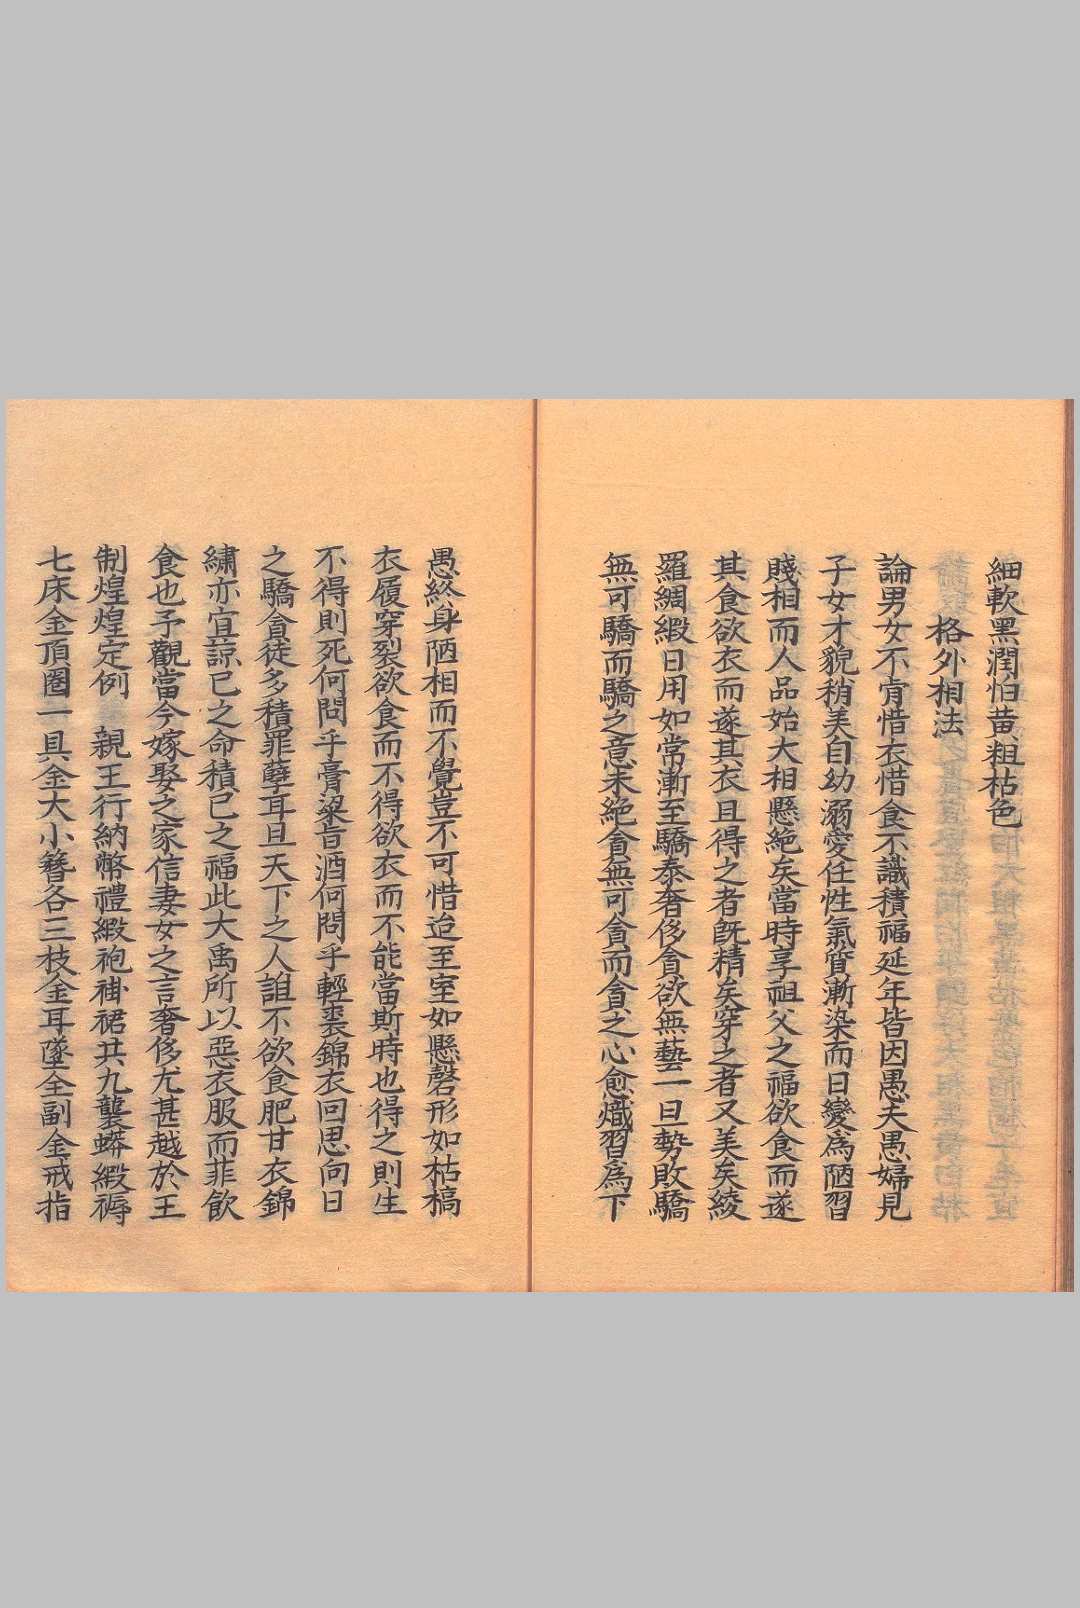 細軟黑潤怕黃粗枯色
格外相法
論男女不肯惜衣惜食不識積福延年皆因愚夫愚婦見
子女才貌稍美自幼溺愛任性氣質漸染而日變爲陋習
賤相而人品始大相懸絶矣當時享祖父之福欲食而遂
其食欲衣而遂其衣且得之者旣精矣穿之者又美矣綾
羅綢緞日用如常漸至驕泰奢侈貪欲無藝一旦勢敗驕
無可驕而驕之意未絶貪無可貪而貪之心愈熾習爲下
愚終身陋相而不覺豈不可惜迨至室如懸磬形如枯槁
衣履穿裂欲食而不得欲衣而不能當斯時也得之則生
不得則死何問乎膏粱旨酒何問乎輕裘錦衣回思向日
之驕貪徒多積罪孽耳且天下之人誰不欲食肥甘衣錦
繡亦宜諒已之命積已之福此大禹所以惡衣服而菲飲
食也予觀當今嫁娶之家信妻女之言奢侈尤甚越於王
制煌煌定例 親王行納幣禮緞袍褂裙共九襲蟒緞褥
七床金頂圈一具金大小簪各三枝金耳墜全副金戒指